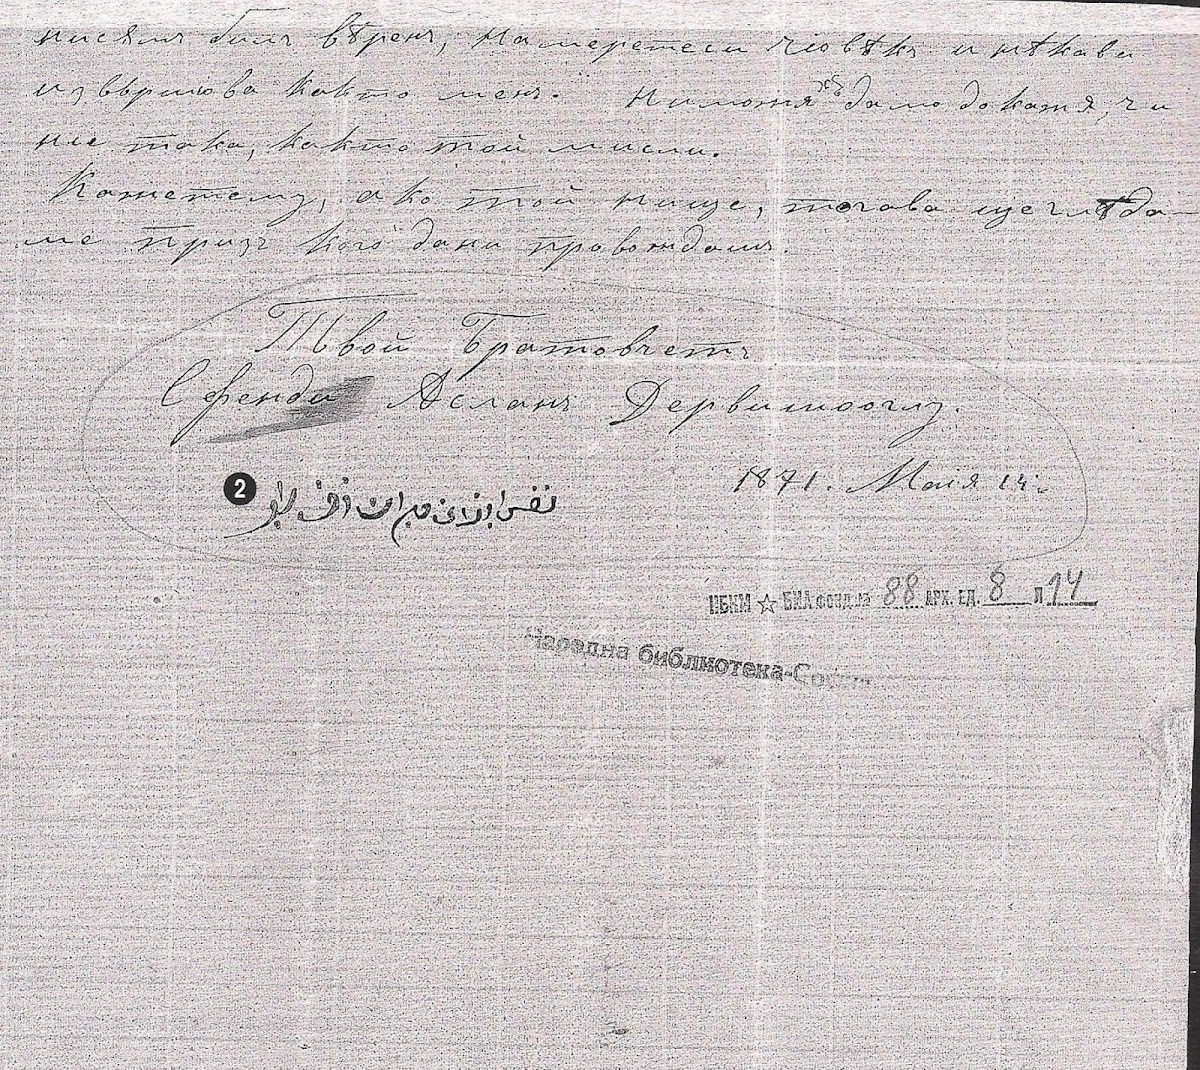 нисѫмъ билъ вѣренъ, намеретеси человѣкъ и нѣкава
извършова както менъ. Ниможя да му докажя, чи
ние така, както той мисли.
Кажетему, ако той нище, тогава щегледа-
ме призъ кого дани провождамъ.
Твой Братовчетъ
Ефенди Асланъ Дервишооглу.
1871. Маія 14.
2
НБКМ ☆ БИА ФОНД № 88 АРХ. ЕД. 8 Л 14
Народна библиотека-София